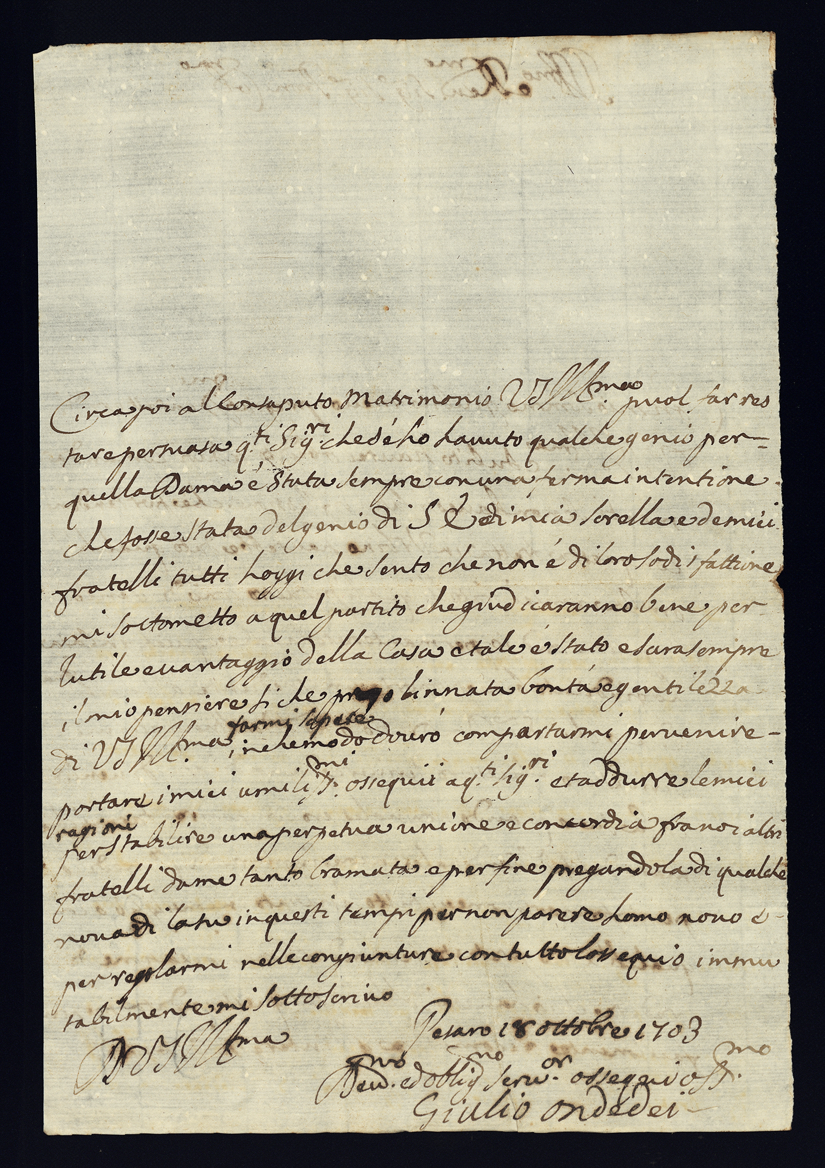 Circa poi al Consaputo Matrimonio V S Illma puol far res
tare persuasa q.ti Sig.ri che sé ho havuto qualche genio per=
quella Dama é stata sempre con una ferma intentione
che fosse stata del genio di S E di mia sorella e de miei
fratelli tutti hoggi che sento che non é di loro sodisfattione
mi sottometto a quel partito che giudicaranno bene per
lutile e vantaggio della Casa e tale é stato e sara sempre
il mio pensiere si che prego linnata bontá e gentilezza
farmi sapere
di V S Illma in che modo dovró comportarmi per venire =
portare i miei umiliss.mi ossequii a q.ti Sig.ri et addurre le miei
ragioni
per stabilire una perpetua unione e concordia fra noi altri
fratelli da me tanto bramata e per fine pregandola di qualche
nova di la su in questi tempi per non parere homo novo e
per regolarmi nelle congiunture con tutto lossequio immu
tabilmente mi sottoscrivo
Pesaro 18 ottobre 1703
D V S Illma
Dev.mo ed oblig.mo serv.or ossequiosss.mo
Giulio Ondedei